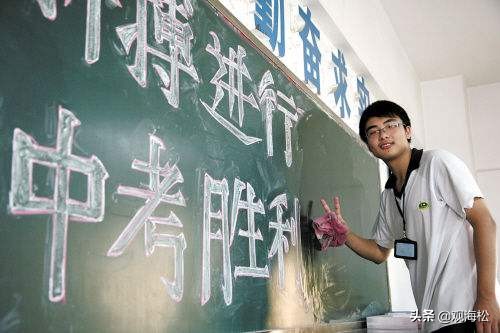 勤奋求
搏进行
中考胜利
头条 @观海松